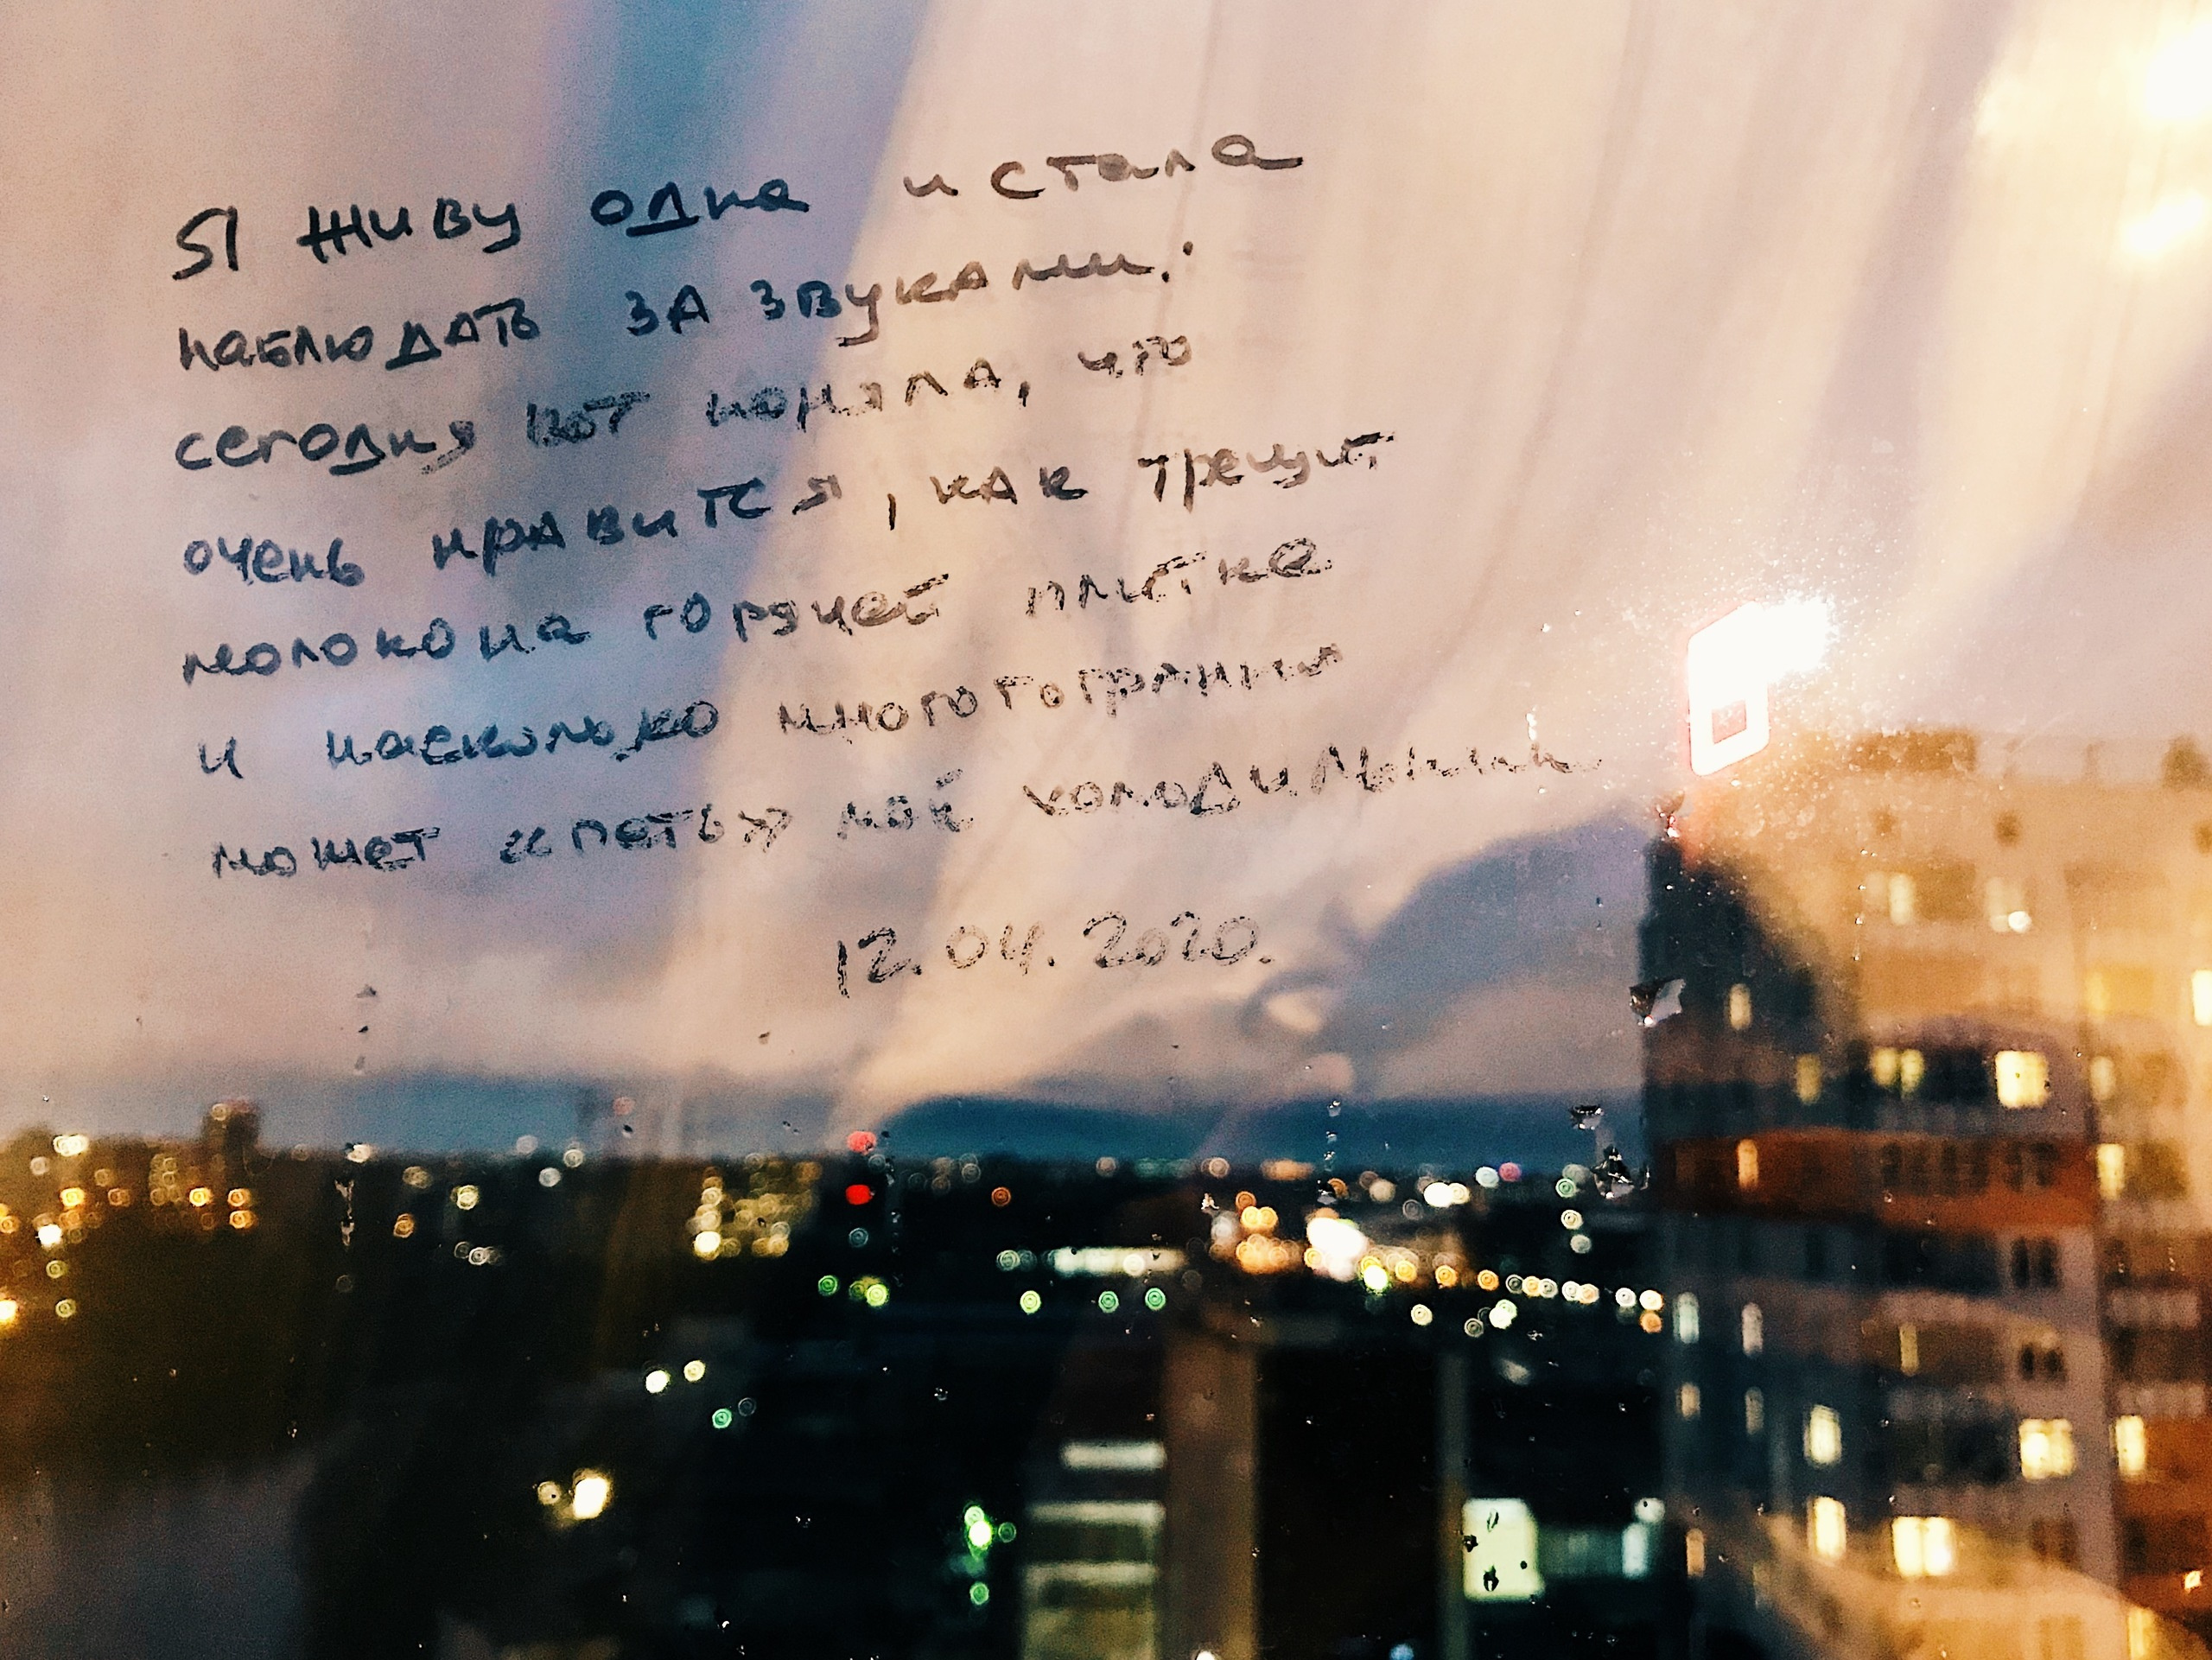 Я живу одна и стала
наблюдать за звуками:
сегодня вот поняла, что
очень нравится, как трещит
молоко на горячей плитке
и насколько многогранно
может «петь» мой холодильник
12.04.2020.